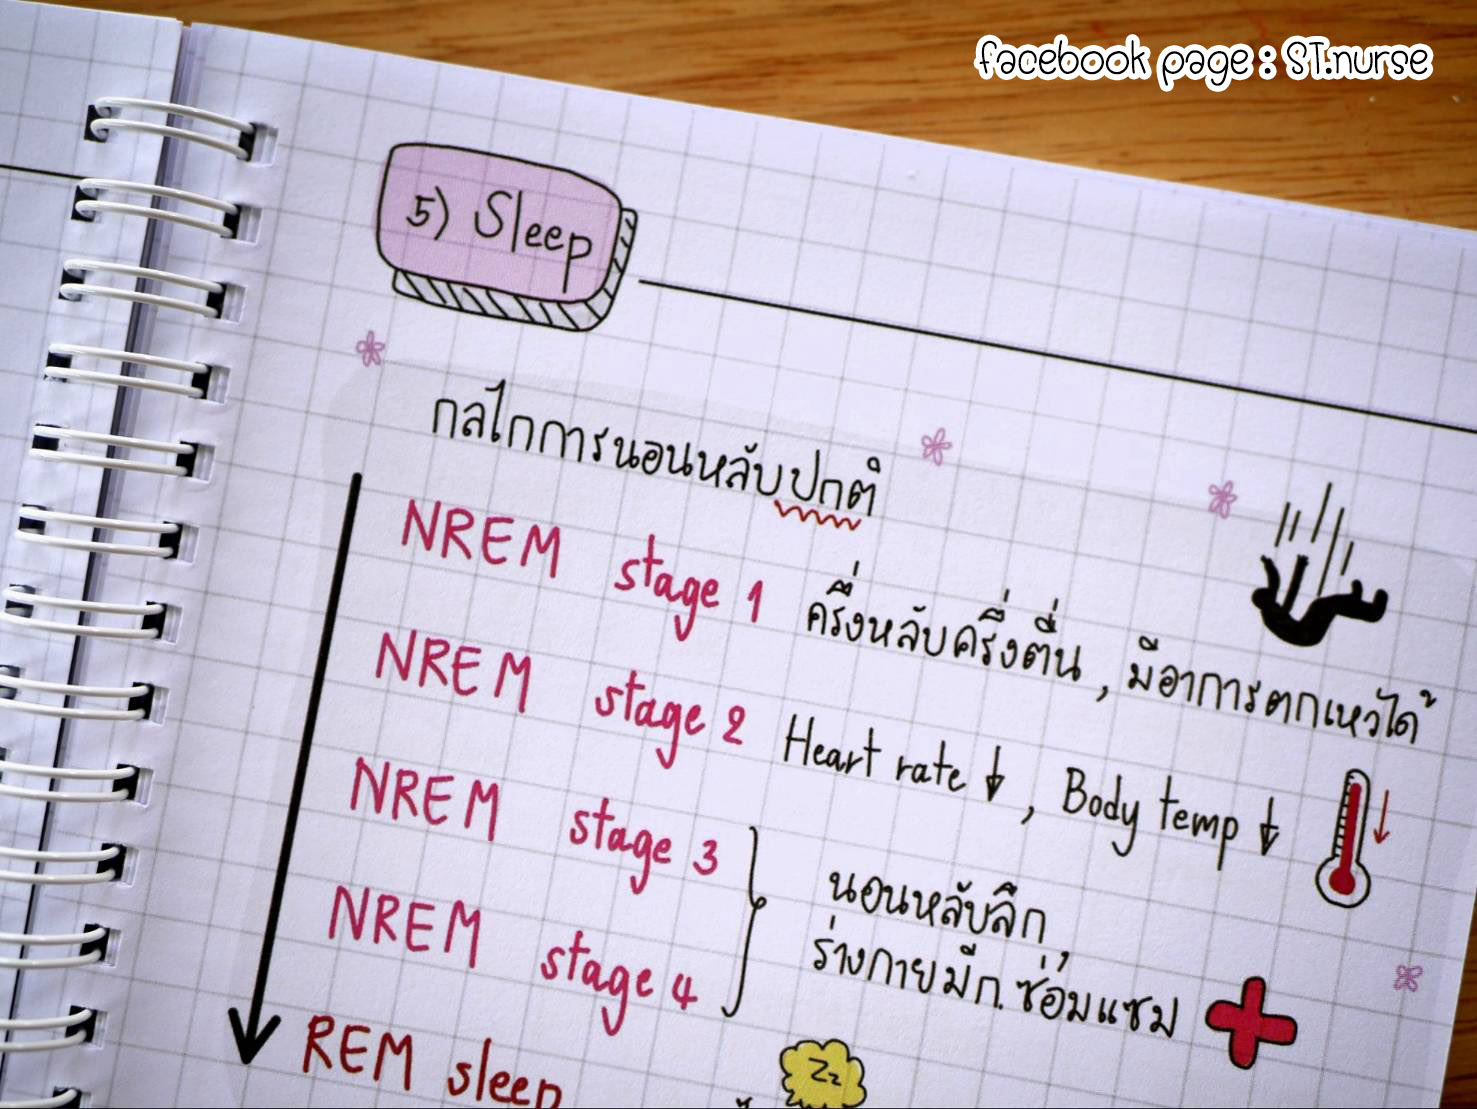 facebook page : ST.nurse
5) Sleep
กลไกการนอนหลับปกติ
NREM stage 1 ครึ่งหลับครึ่งตื่น , มีอาการตกเหวได้
NREM stage 2 Heart rate ↓ , Body temp ↓
NREM stage 3
NREM stage 4
นอนหลับลึก ,
ร่างกายมีก. ซ่อมแซม
REM sleep
Zz